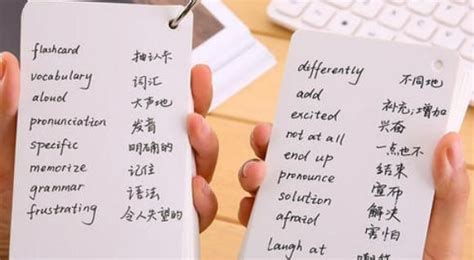 flashcard 抽认卡
vocabulary 词汇
aloud 大声地
pronunciation 发音
specific 明确的
memorize 记住
grammar 语法
frustrating 令人失望的
differently 不同地
add 补充;增加
excited 兴奋
not at all 一点也不
end up 结束
pronounce 宣布
solution 解决
afraid 害怕
laugh at